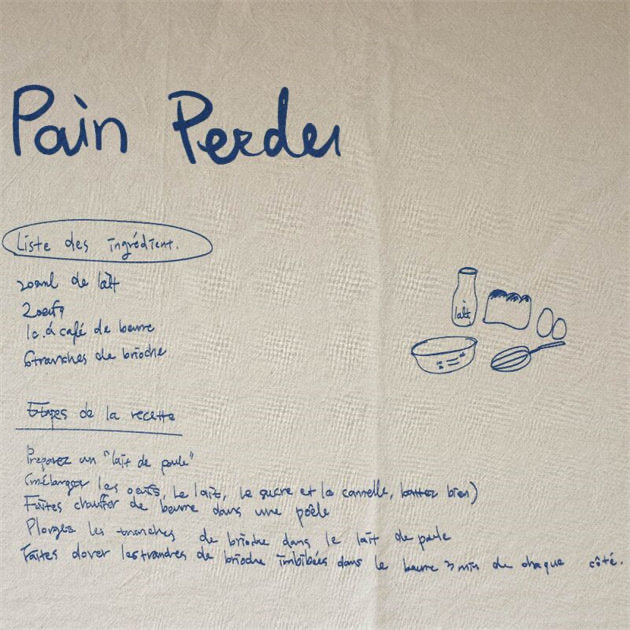 Pain Perdu
Liste des ingrédient.
200ml de laît
2 oeufs
1c.à café de beurre
6 tranches de brioche
laît
Etapes de la recette
Preparez un "laît de poule"
(mélanger les oeufs, le laît, le sucre et la cannelle, battez bien)
Faites chauffer de beurre dans une poêle
Plongez les tranches de brioche dans le laît de poule
Faites dorer les tranches de brioche imbibées dans le beurre 3 min de chaque côté.